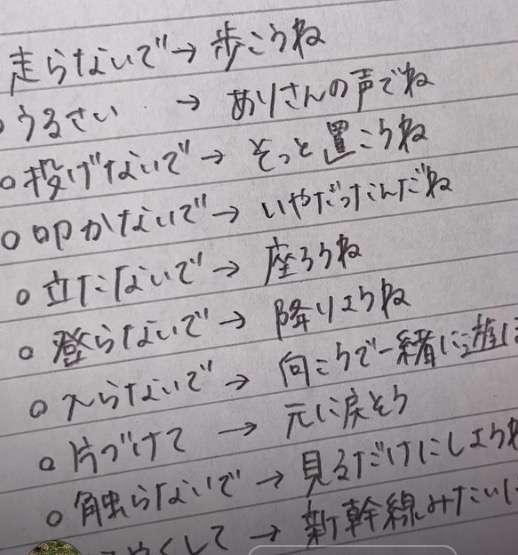 走らないで→歩こうね
○うるさい → ありさんの声でね
○投げないで→そっと置こうね
○叩かないで→いやだったんだね
○立たないで→座ろうね
○登らないで→降りようね
○入らないで→向こうで一緒に遊
○片づけて → 元に戻そう
○触らないで→見るだけにしようね
やくして→新幹線みたいに